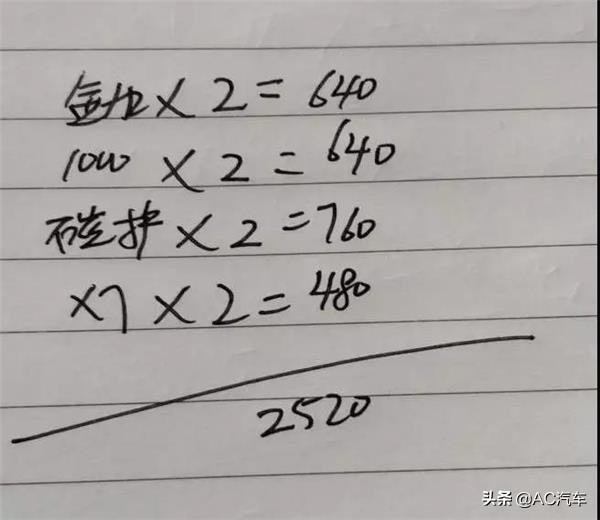 金护 × 2 = 640
1000 × 2 = 640
磁护 × 2 = 760
X7 × 2 = 480
2520
头条 @AC汽车